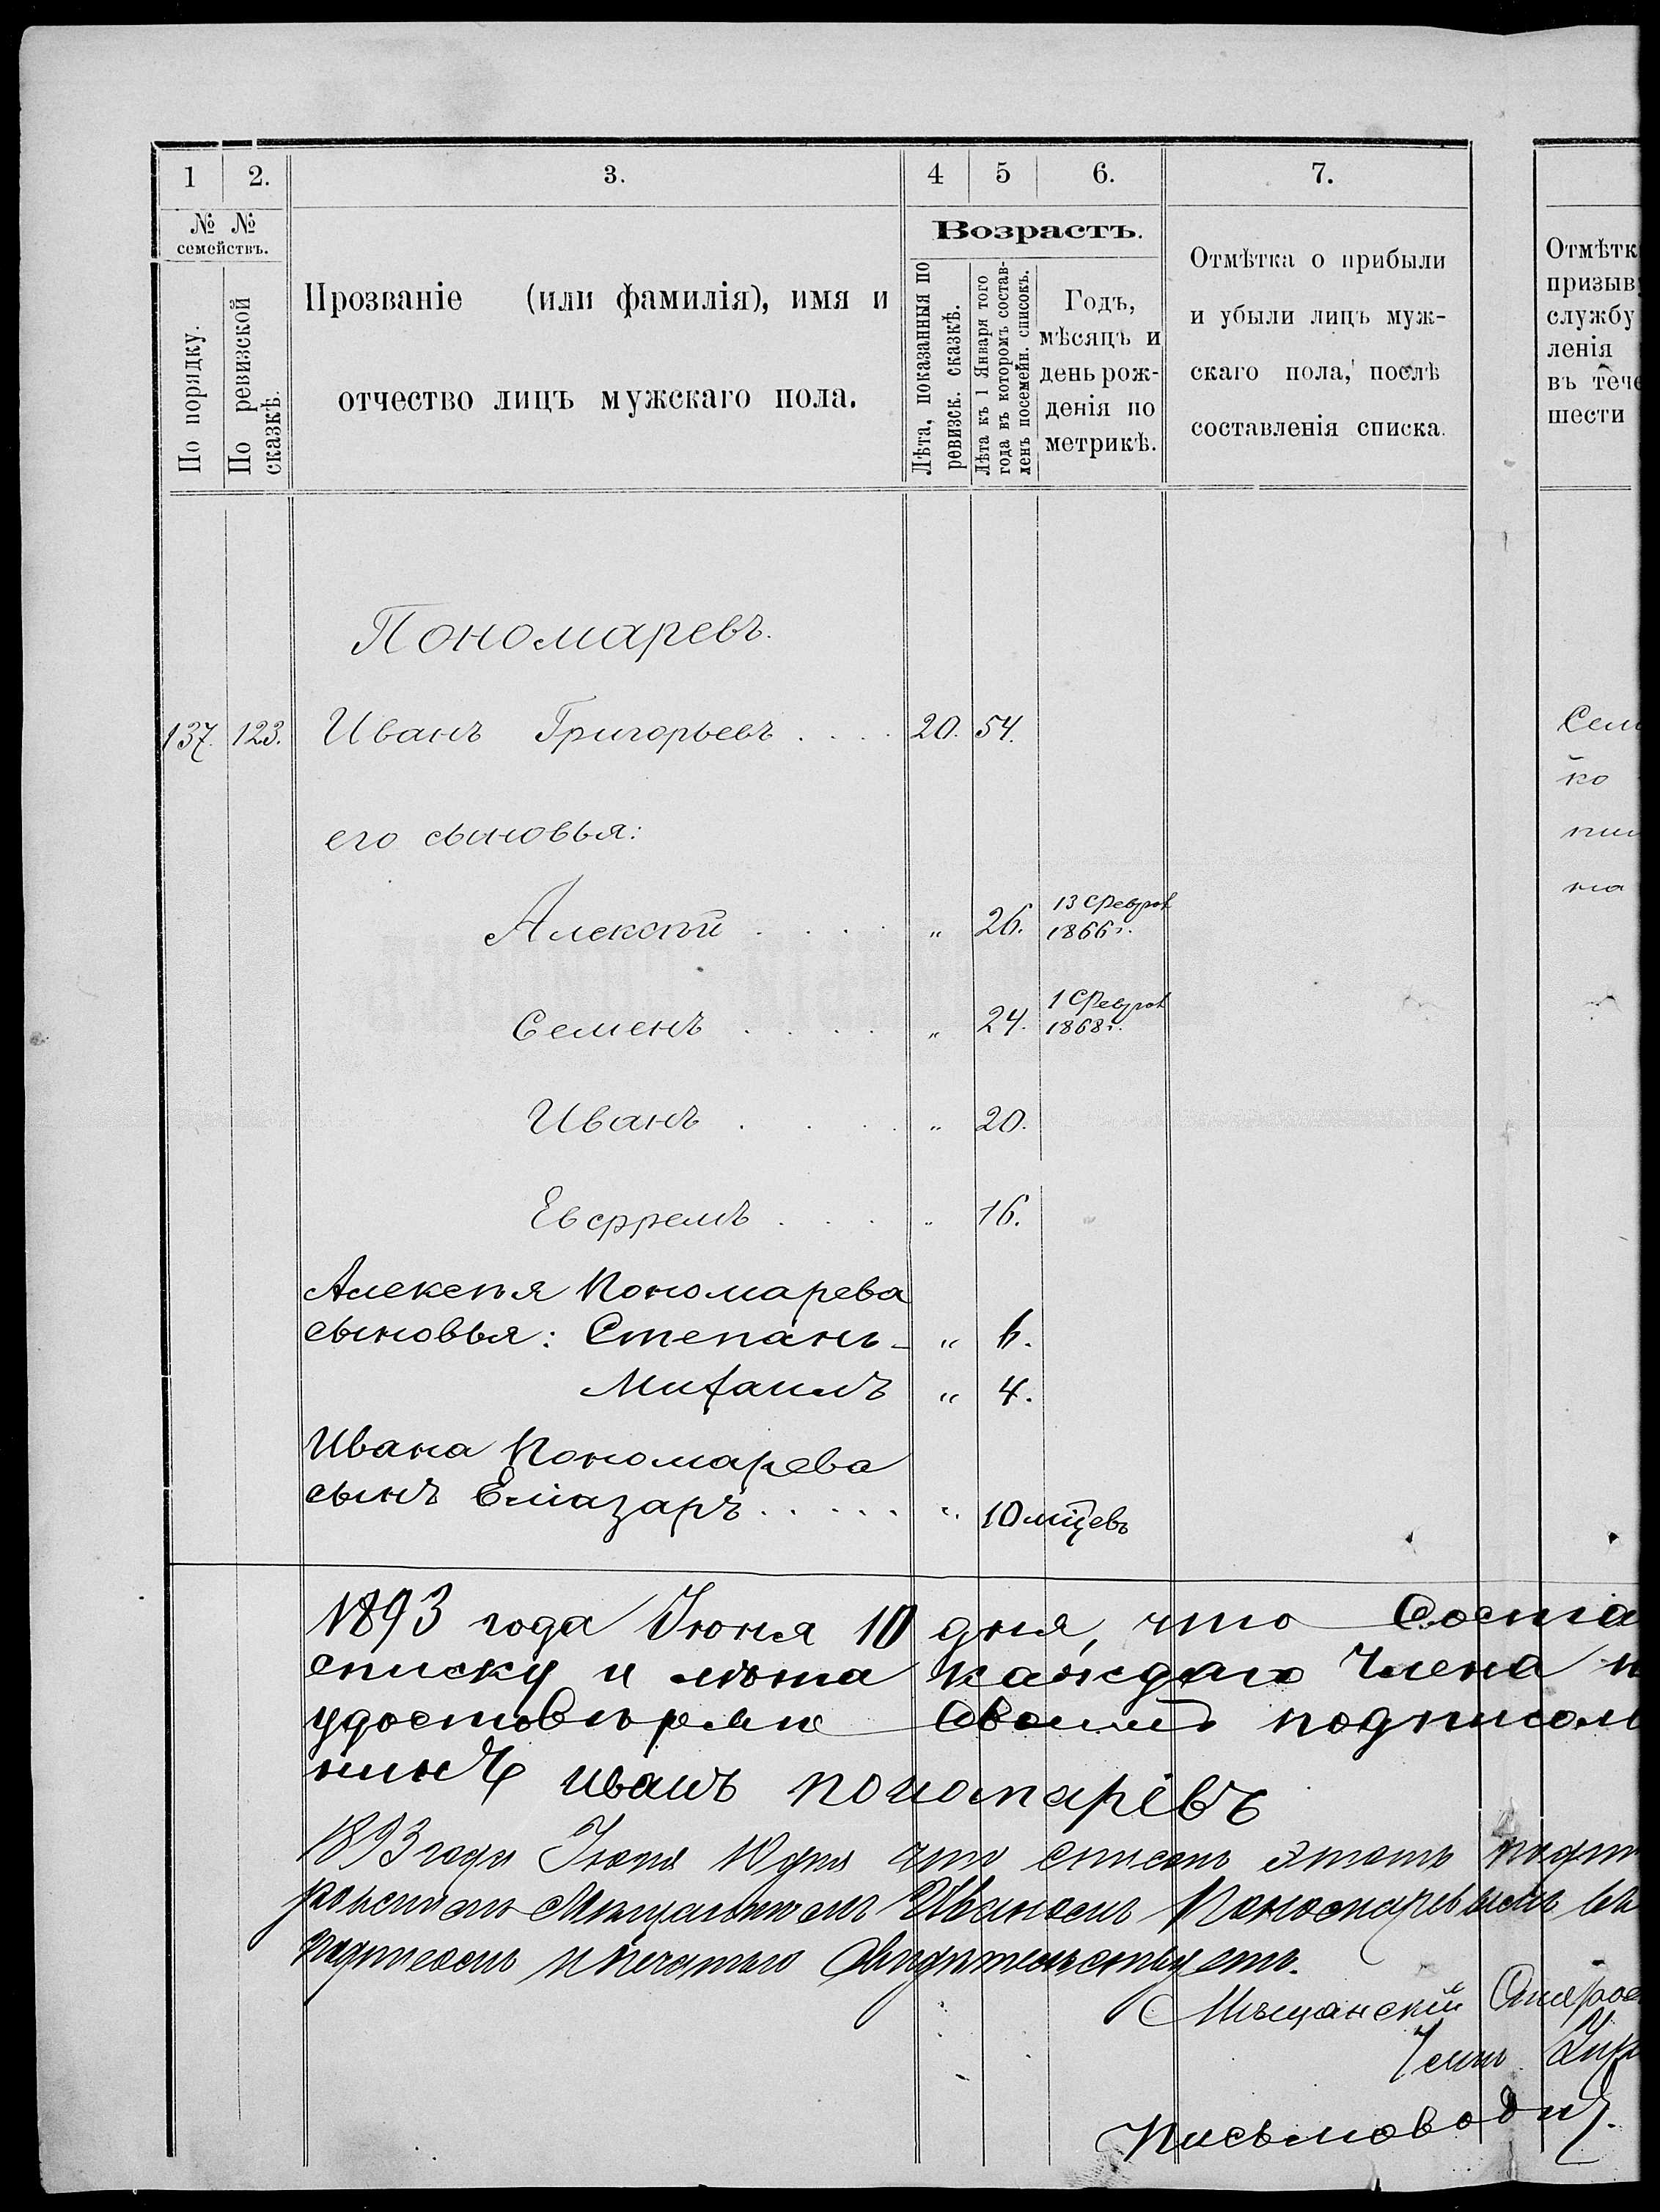 1 2. 3. 4 5 6. 7.
№ № семействъ.
По порядку.
По ревизской сказкѣ.
Прозваніе (или фамилія), имя и
отчество лицъ мужскаго пола.
Возрастъ.
Лѣта, показанныя по ревизск. сказкѣ.
Лѣта къ 1 Января того года въ которомъ составленъ посемейн. списокъ.
Годъ,
мѣсяцъ и
день рож-
денія по
метрикѣ.
Отмѣтка о прибыли
и убыли лицъ муж-
скаго пола, послѣ
составленія списка.
Отмѣтк
призыв
службу
ленія
въ тече
шести
Пономаревъ.
137. 123. Иванъ Григорьевъ . . . . 20. 54.
его сыновья:
Алексѣй . . . . „ 26. 13 Феврал 1866 г.
Семенъ . . . . „ 24. 1 Феврал 1868 г.
Иванъ . . . . „ 20.
Евфремъ . . . . „ 16.
Алексѣя Пономарева
сыновья: Степанъ - „ 6.
Михаилъ „ 4.
Ивана Пономарева
сынъ Елиазаръ . . . . . „ 10 мѣцевъ
ко
на
1893 года Июня 10 дня, что Соста
списку и лѣта каждаго члена
удостовѣряю своимъ подписом
нинъ иванъ пономарiвъ
1893 года Июня 10 дня что списокъ этотъ подп
Иваномъ Пономаревымъ въ
подписомъ и печатью свидѣтельствуетъ.
Мѣщанскій Старос
Письмовод